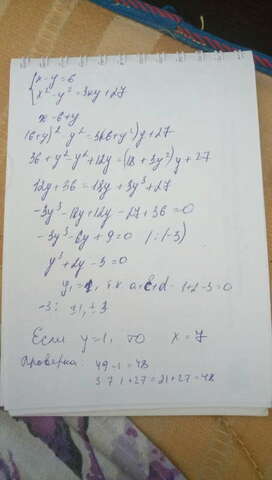 x - y = 6
x² - y² = 3xy + 27
x = 6 + y
(6+y)² - y² = 3(6+y²)y + 27
36 + y² - y² + 12y = (18 + 3y²)y + 27
12y + 36 = 18y + 3y³ + 27
-3y³ - 18y + 12y - 27 + 36 = 0
-3y³ - 6y + 9 = 0 | :(-3)
y³ + 2y - 3 = 0
y₁ = 1, т.к a+c+d - 1+2-3=0
-3: ±1, ±3
Если y = 1, то x = 7
Проверка: 49 - 1 = 48
3·7·1+27 = 21+27 = 48